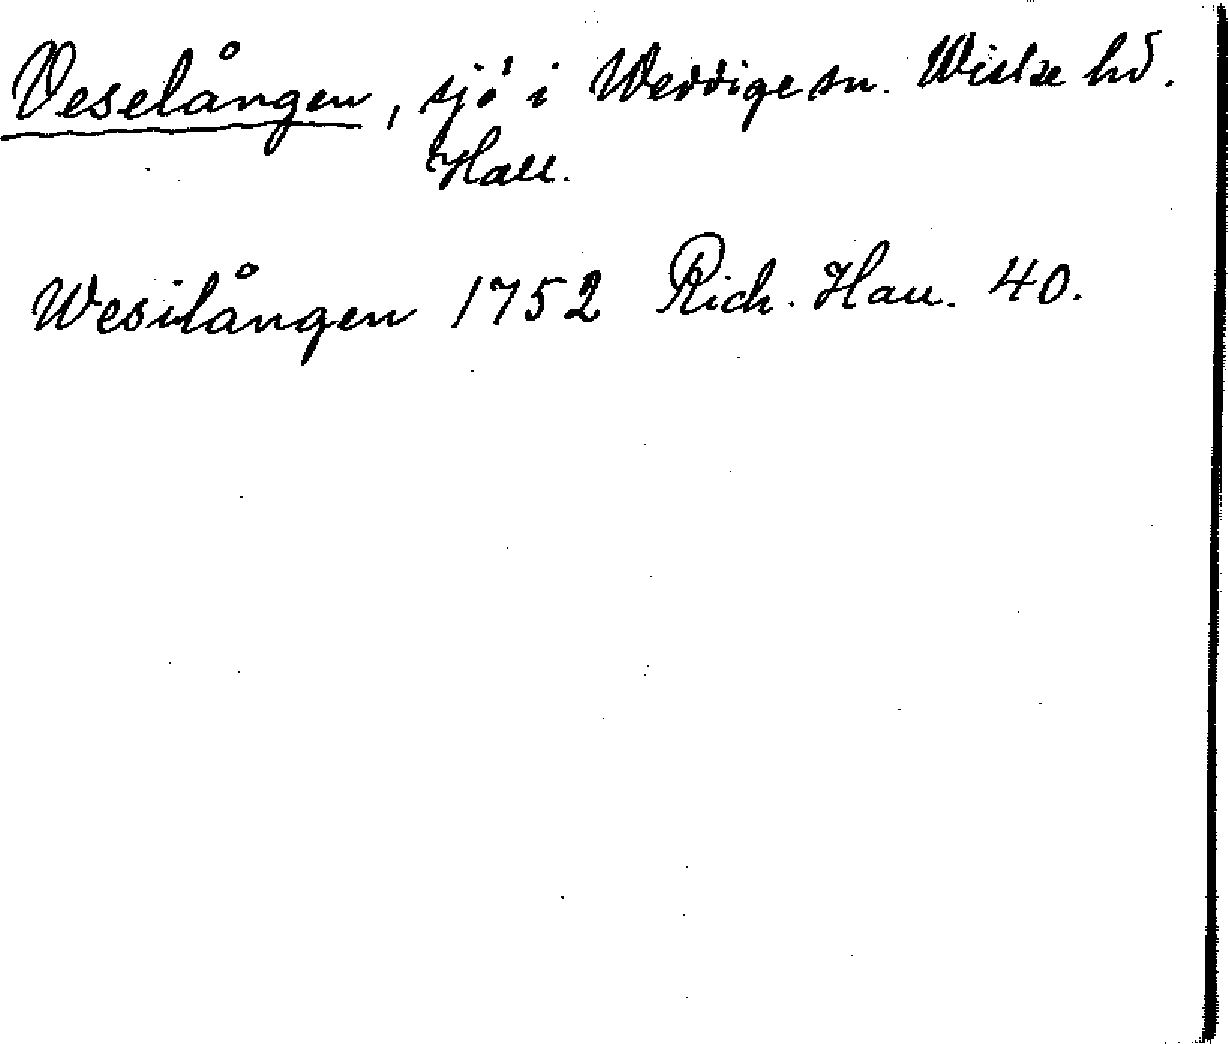 Veselången, sjö i Weddige sn. Wiske hd.
Hall.
Wesilången 1752 Rich. Hall. 40.